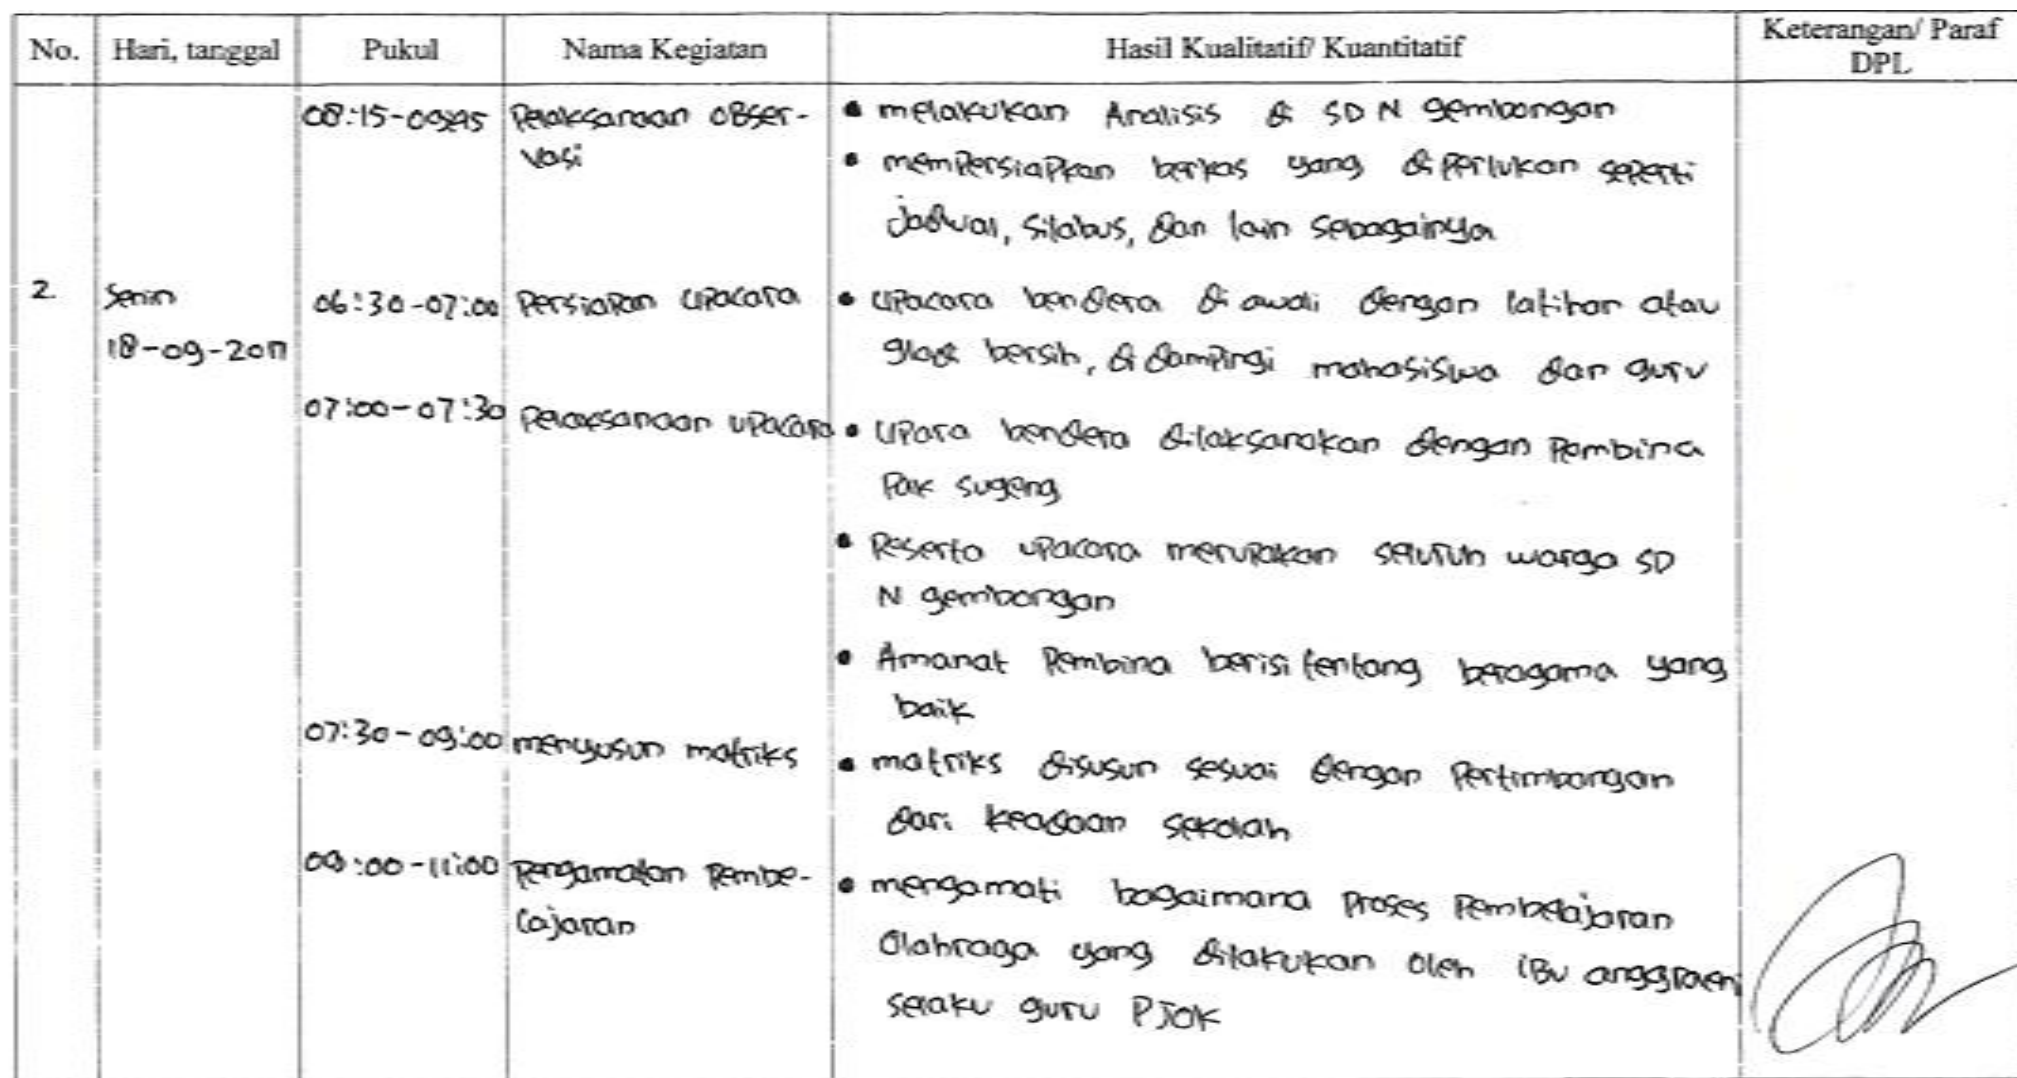 No. Hari, tanggal Pukul Nama Kegiatan Hasil Kualitatif/ Kuantitatif Keterangan/ Paraf
DPL
08:15- Pelaksanaan obser- • melakukan Analisis di SD N gembongan
vasi • mempersiapkan berkas yang diperlukan seperti
jadwal, silabus, dan lain sebagainya
2. Senin 06:30-07:00 Persiapan upacara • upacara bendera di awali dengan latihan atau
18-09-2017 gladi bersih, di dampingi mahasiswa dan guru
07:00-07:30 pelaksanaan upacara • upara bendera dilaksanakan dengan Pembina
Pak sugeng
• Peserta upacara merupakan seluruh warga SD
N gembongan
• Amanat Pembina berisi tentang beragama yang
baik
07:30-09:00 menyusun matriks • matriks disusun sesuai dengan Pertimbangan
dari keadaan sekolah
09:00-11:00 Pengamatan Pembe- • mengamati bagaimana Proses Pembelajaran
lajaran Olahraga yang dilakukan oleh iBu anggraeni
selaku guru PJOK